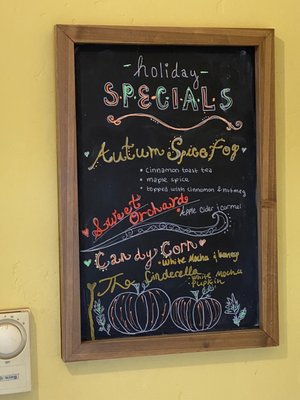 -holiday-
SPECIALS
Autumn Spice Fog
• cinnamon toast tea
• maple spice
• topped with cinnamon & nutmeg
Sweet Orchard
• Apple cider & carmel
Candy Corn
• White Mocha & honey
The Cinderella
• White Mocha
Pupkin